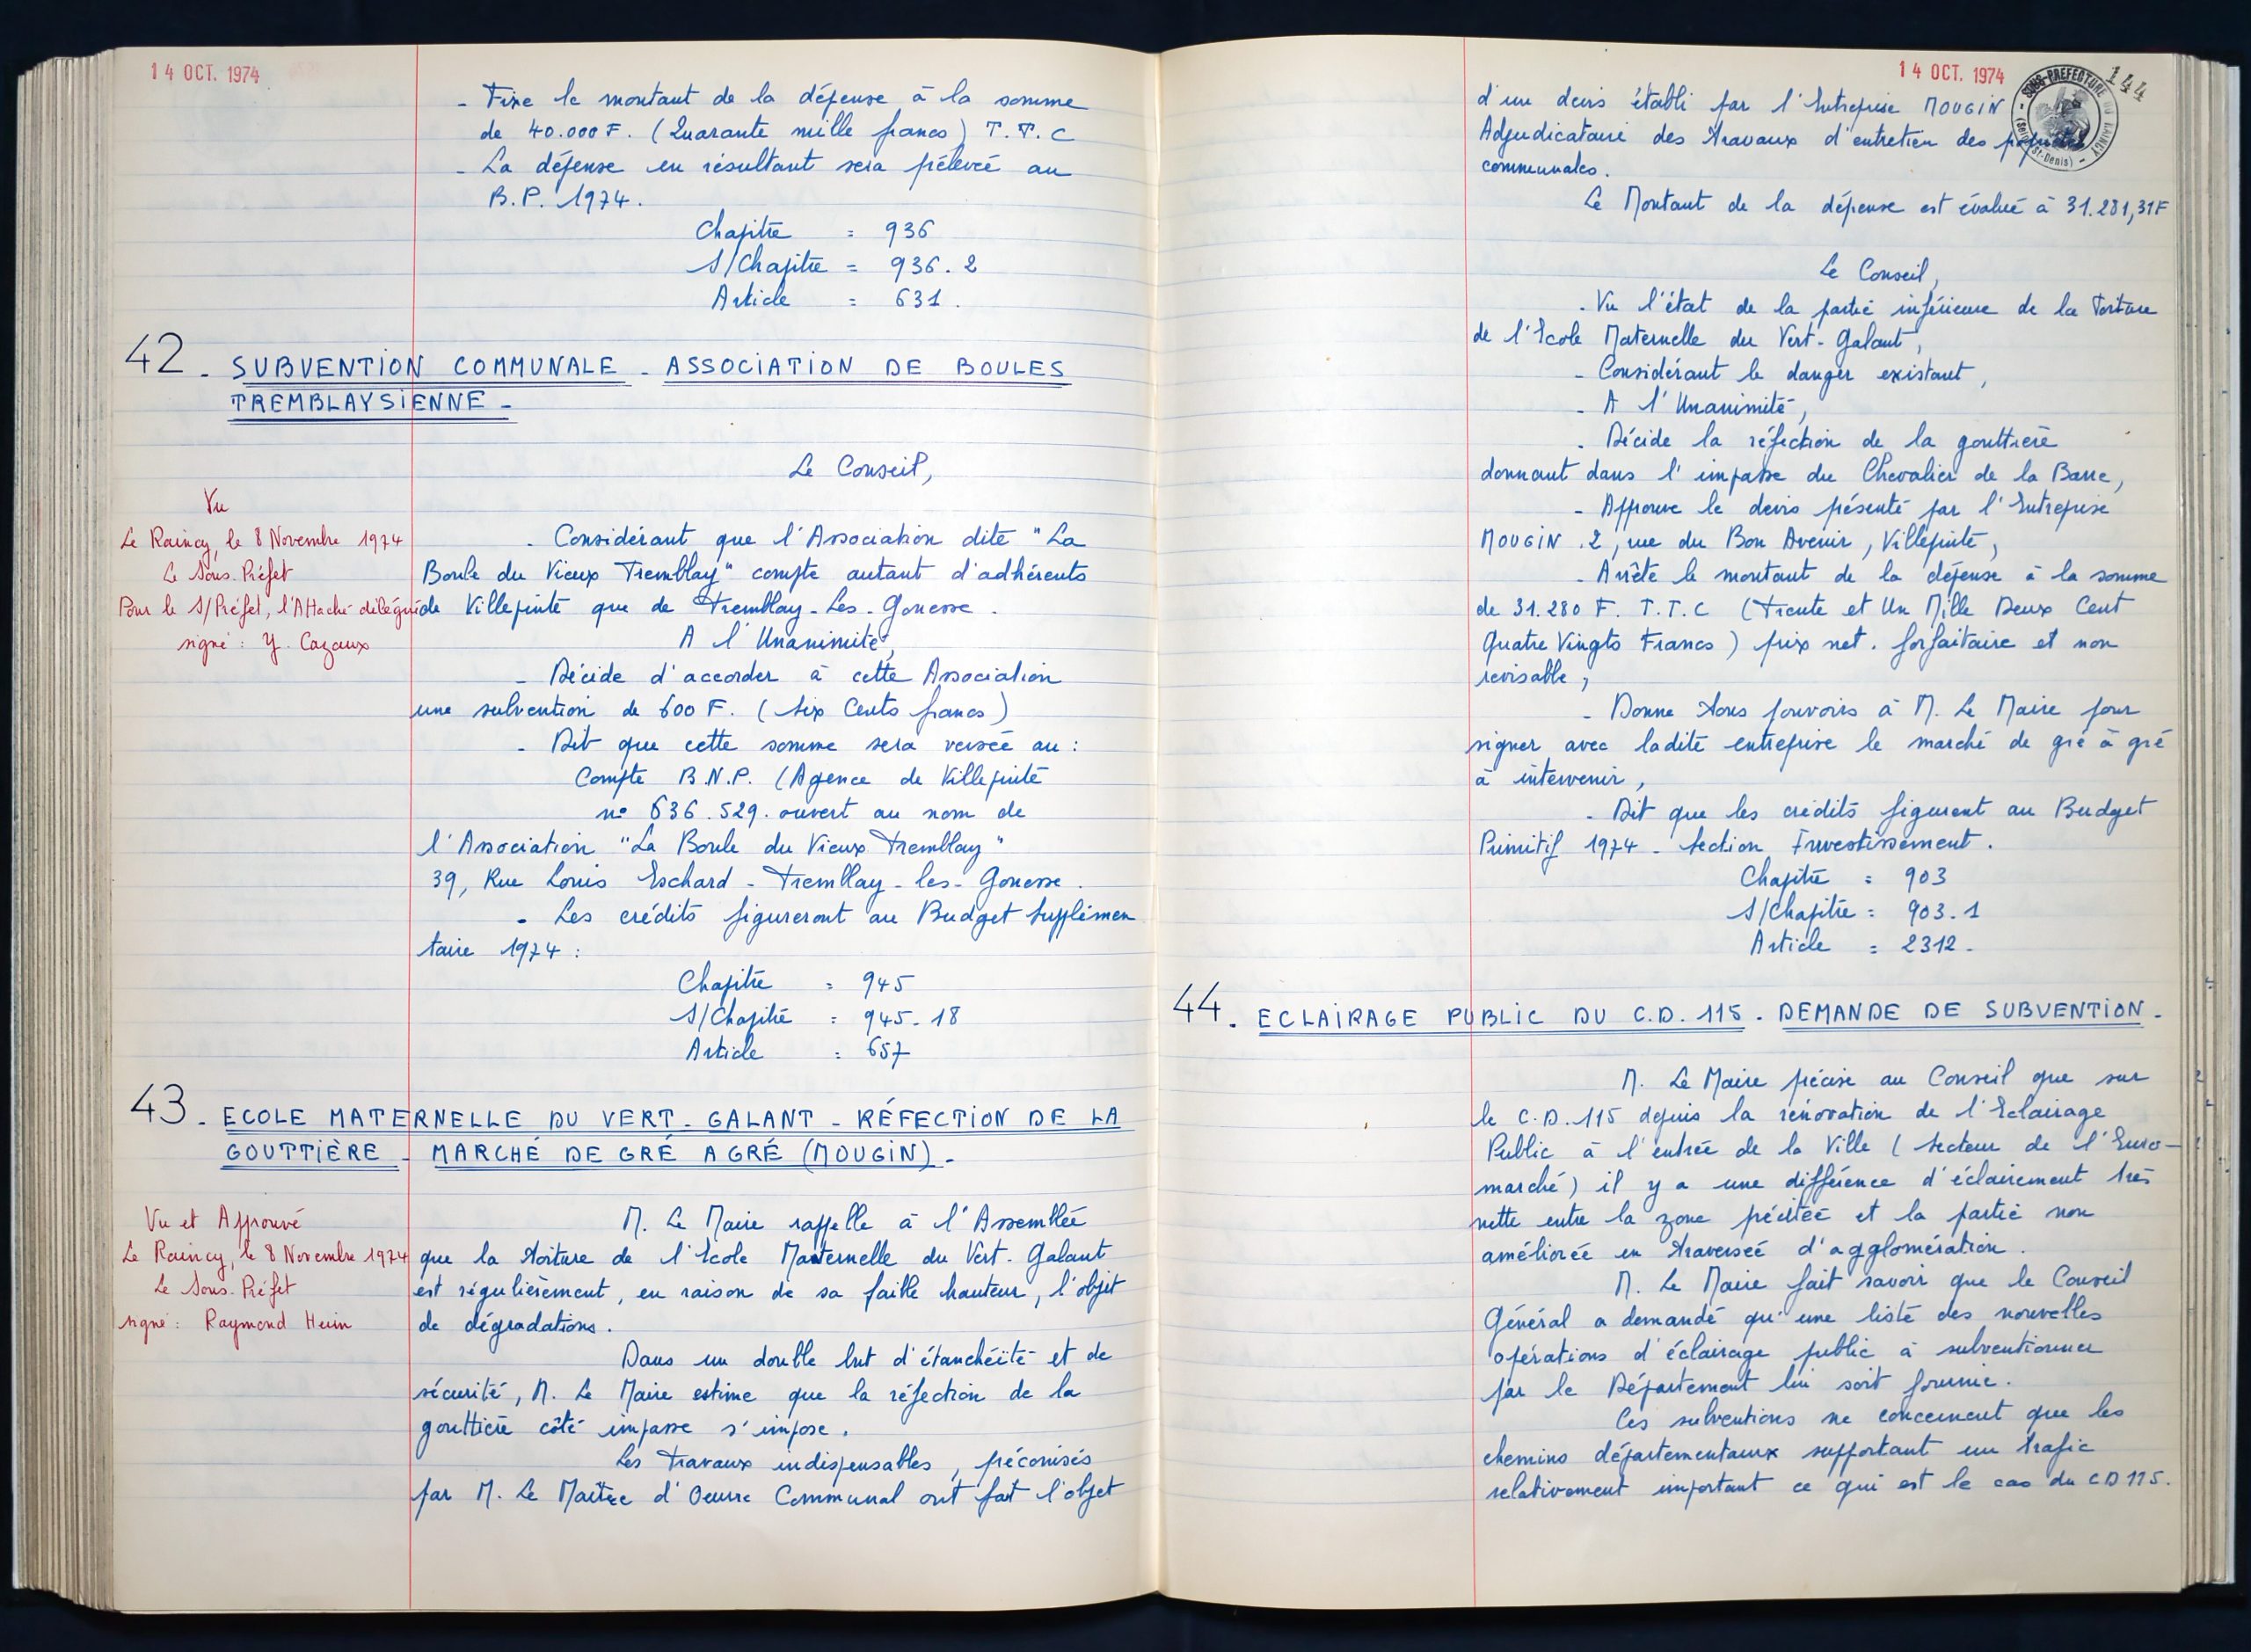 14 OCT. 1974
- Fixe le montant de la dépense à la somme
de 40.000 F. (Quarante mille francs) T.T.C
- La dépense en résultant sera prélevée au
B.P. 1974.
Chapitre = 936
S/Chapitre = 936.2
Article = 631.
42 - SUBVENTION COMMUNALE - ASSOCIATION DE BOULES
TREMBLAYSIENNE -
Le Conseil,
Vu
Le Raincy, le 8 Novembre 1974
Le Sous-Préfet
Pour le S/Préfet, l'Attaché délégué
signé : Y. Cazaux
- Considérant que l'Association dite "La
Boule du Vieux Tremblay" compte autant d'adhérents
de Villepinte que de Tremblay-Les-Gonesse.
A l'Unanimité,
- Décide d'accorder à cette Association
une subvention de 600 F. (Six Cents francs)
- Dit que cette somme sera versée au :
Compte B.N.P. (Agence de Villepinte
n° 636.529. ouvert au nom de
l'Association "La Boule du Vieux Tremblay"
39, Rue Louis Eschard - Tremblay-les-Gonesse.
- Les crédits figureront au Budget Supplémen
taire 1974 :
Chapitre = 945
S/Chapitre = 945-18
Article = 657
43 - ECOLE MATERNELLE DU VERT-GALANT - RÉFECTION DE LA
GOUTTIÈRE - MARCHÉ DE GRÉ A GRÉ (MOUGIN) -
Vu et Approuvé
Le Raincy, le 8 Novembre 1974
Le Sous-Préfet
signé : Raymond Heim
M. Le Maire rappelle à l'Assemblée
que la toiture de l'Ecole Maternelle du Vert-Galant
est régulièrement, en raison de sa faible hauteur, l'objet
de dégradations.
Dans un double but d'étanchéïté et de
sécurité, M. Le Maire estime que la réfection de la
gouttière côté impasse s'impose.
Les travaux indispensables, préconisés
par M. Le Maître d'Oeuvre Communal ont fait l'objet
14 OCT. 1974
144
SOUS-PREFECTURE DU RAINCY
(Seine-St-Denis)
d'un devis établi par l'Entreprise MOUGIN
Adjudicataire des travaux d'entretien des propriétés
communales.
Le Montant de la dépense est évalué à 31.281,31F
Le Conseil,
- Vu l'état de la partie inférieure de la toiture
de l'Ecole Maternelle du Vert-Galant,
- Considérant le danger existant,
- A l'Unanimité,
- Décide la réfection de la gouttière
donnant dans l'impasse du Chevalier de la Barre,
- Approuve le devis présenté par l'Entreprise
MOUGIN . 2, rue du Bon Avenir, Villepinte,
- Arrête le montant de la dépense à la somme
de 31.280 F. T.T.C (Trente et Un Mille Deux Cent
Quatre Vingts Francs) prix net. forfaitaire et non
revisable,
- Donne tous pouvoirs à M. Le Maire pour
signer avec ladite entreprise le marché de gré à gré
à intervenir,
- Dit que les crédits figurent au Budget
Primitif 1974 - Section Investissement.
Chapitre = 903
S/Chapitre = 903.1
Article = 2312.
44 - ECLAIRAGE PUBLIC DU C.D. 115 - DEMANDE DE SUBVENTION -
M. Le Maire précise au Conseil que sur
le C.D. 115 depuis la rénovation de l'Eclairage
Public à l'entrée de la Ville (Secteur de l'Euro-
marché) il y a une différence d'éclairement très
nette entre la zone précitée et la partie non
améliorée en traversée d'agglomération.
M. Le Maire fait savoir que le Conseil
Général a demandé qu'une liste des nouvelles
opérations d'éclairage public à subventionner
par le Département lui soit fournie.
Ces subventions ne concernent que les
chemins départementaux supportant un trafic
relativement important ce qui est le cas du CD 115.